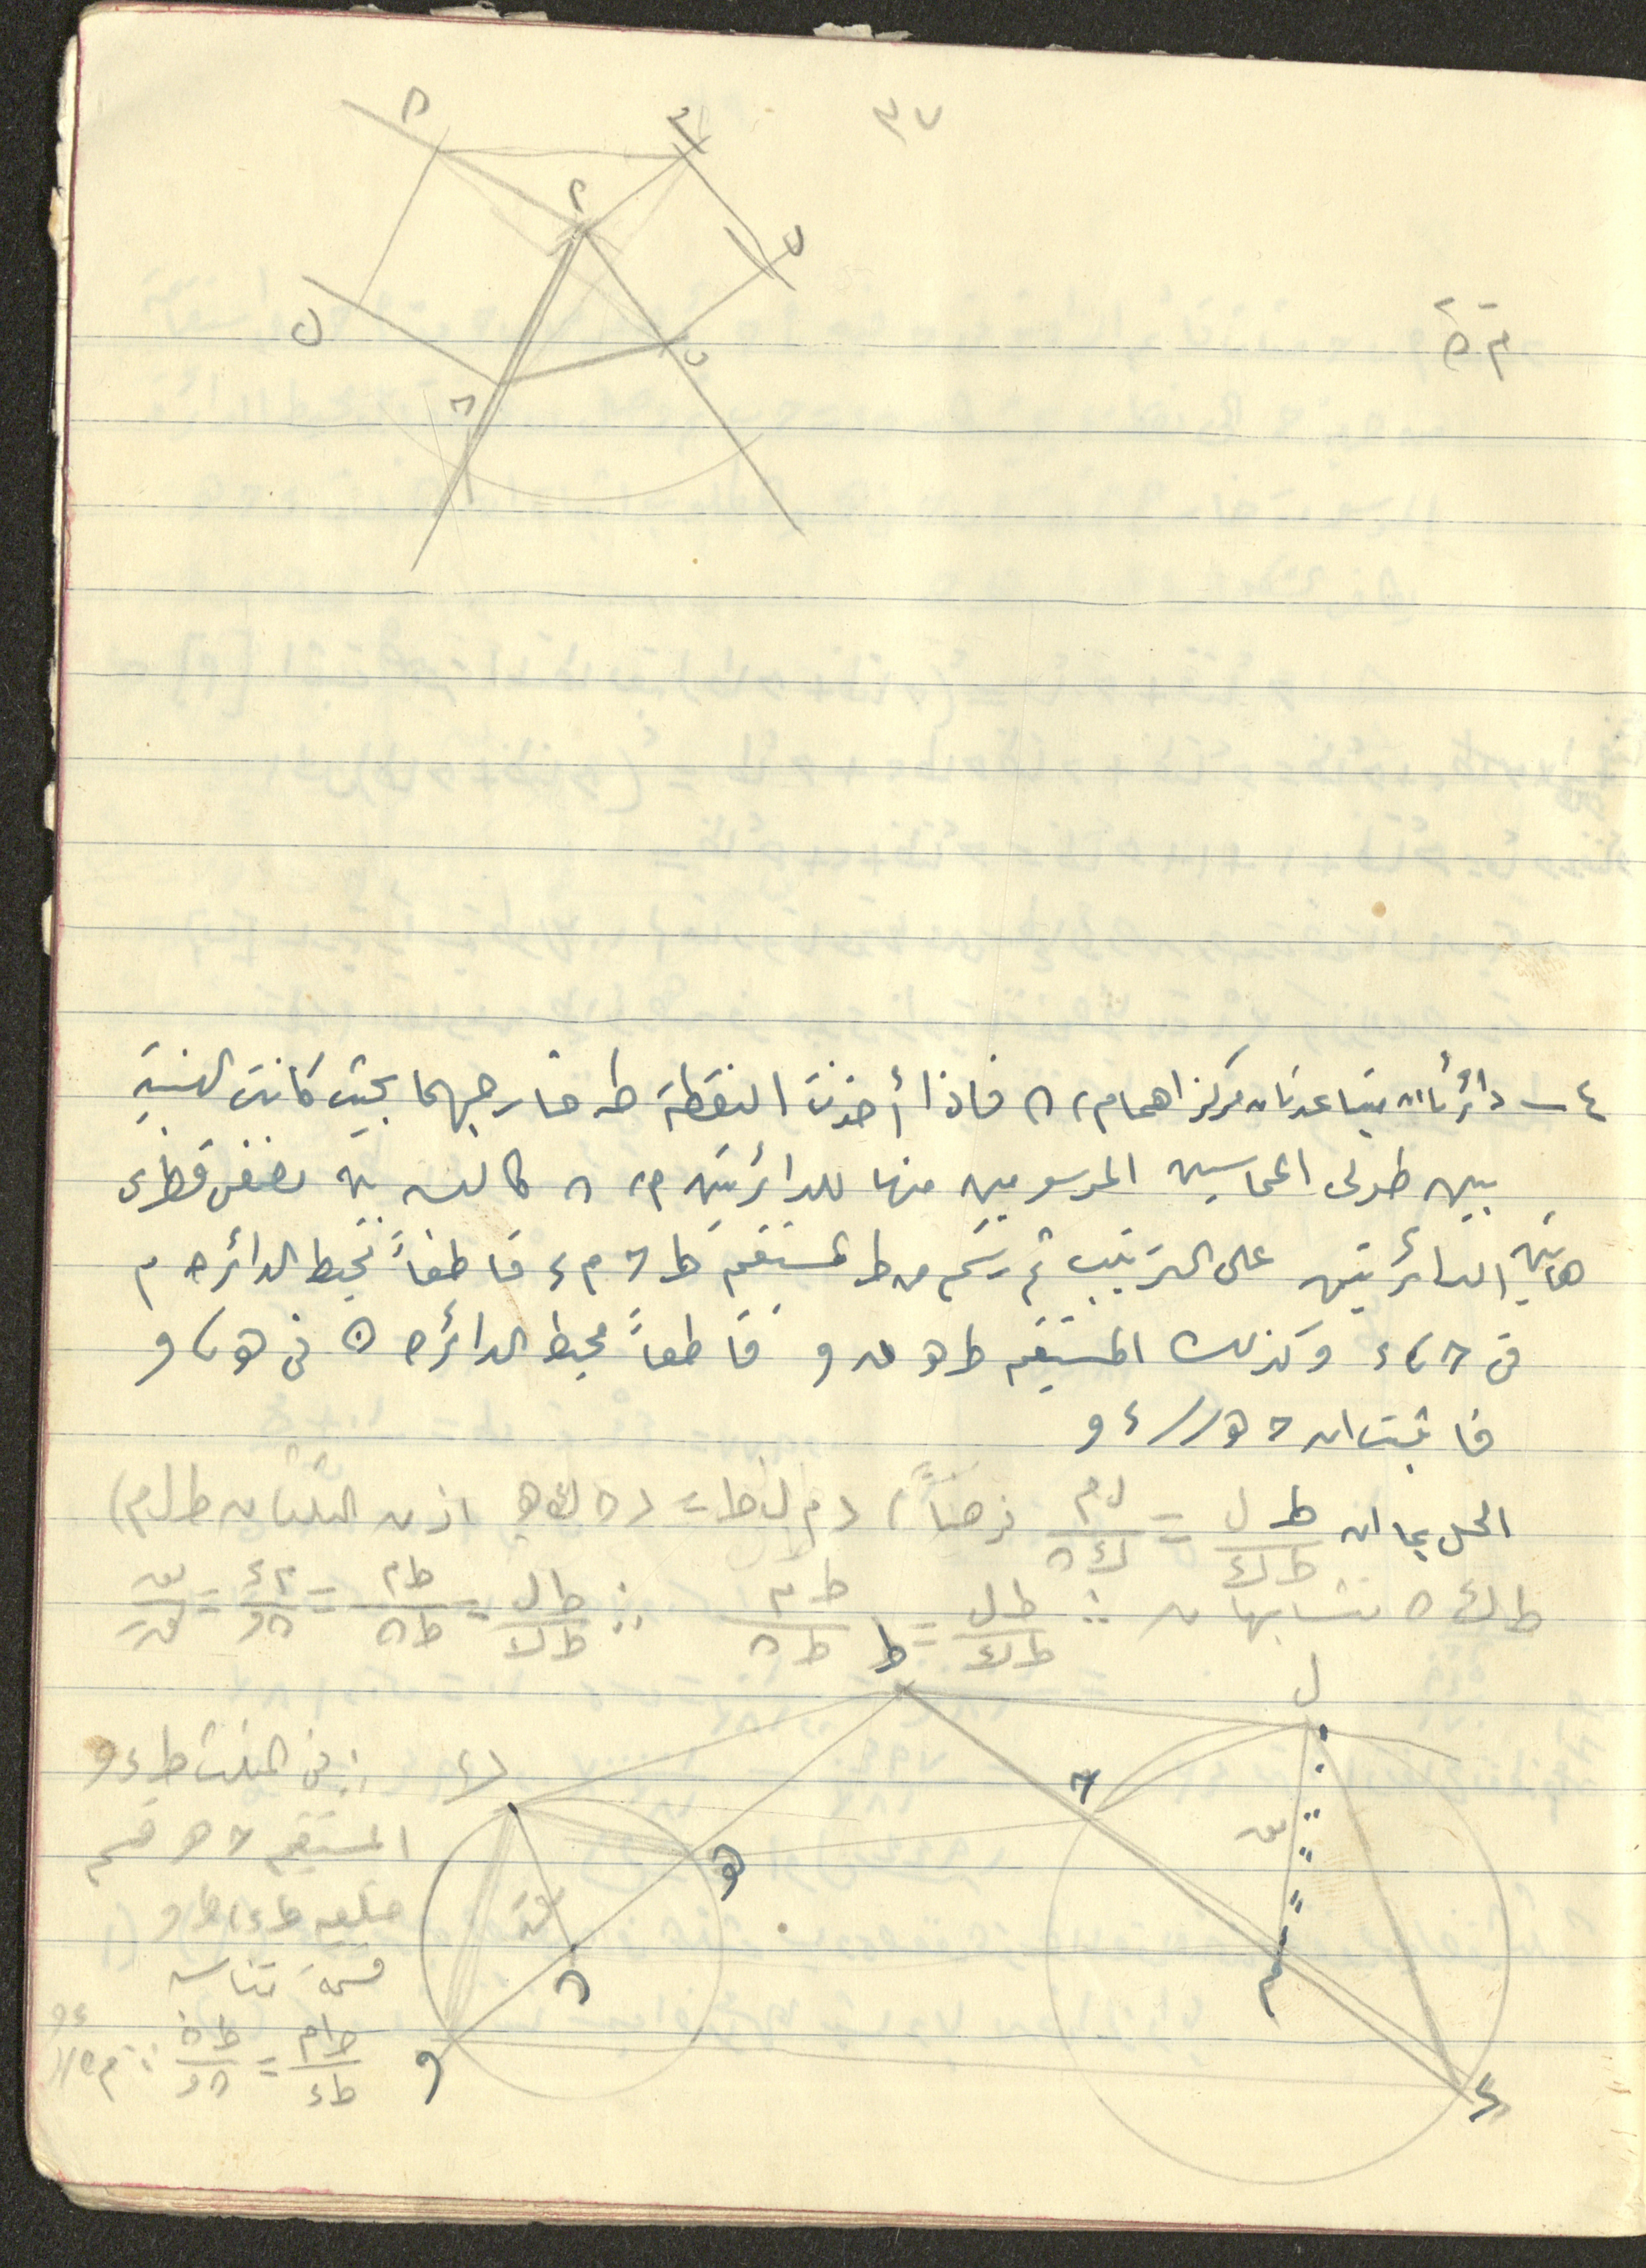 ٣٧
م ن
٤ – دائرتان متباعدتان مركزاهما م، ن فاذا أخذت النقطة ط خارجهما بحيث كانت النسبة
بين طولى المماسين المرسومين منها للدائرتين م، ن كالنسبة بين نصفى قطرى
هاتين الدائرتين على الترتيب ثم رسم من ط المستقيم ط ح م ء قاطعاً محيط الدائرة م
فى ح، ء وكذلك المستقيم ط ه ن و قاطعاً محيط الدائرة ن فى ه، و
فاثبت ان ح ه // ء و
الحل بما ان ط ل / ط ك = ل م / ك ن فرضاً، اذن المثلثان ط ل م،
ط ك ن متشابهان ∴ ط ل / ط ك = ط م / ط ن ∴ ط ل / ط ك = ط م / ط ن = م ء / ن و = نق / نق
∴ فى المثلث ط ء و
المستقيم ح ه قسم
ضلعيه ط ء، ط و
قسمة تناسب
ط م / ط ء = ط ن / ن و ∴ م ن // ء و